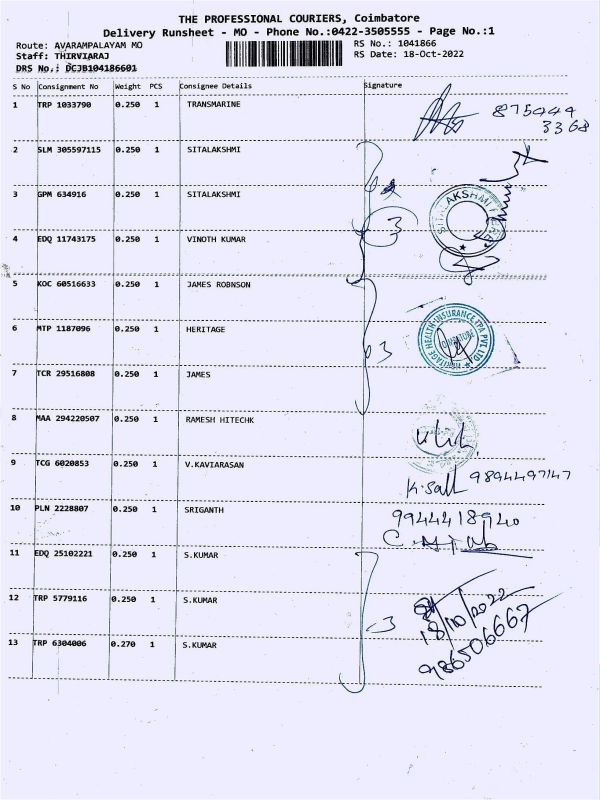 THE PROFESSIONAL COURIERS, Coimbatore
Delivery Runsheet - MO - Phone No.:0422-3505555 - Page No.:1
Route: AVARAMPALAYAM MO RS No.: 1041866
Staff: THIRVIARAJ RS Date: 18-Oct-2022
DRS No.: DCJB104186601
S No Consignment No Weight PCS Consignee Details Signature
1 TRP 1033790 0.250 1 TRANSMARINE 875444
3368
2 SLM 305597115 0.250 1 SITALAKSHMI
3 GPM 634916 0.250 1 SITALAKSHMI
3
4 EDQ 11743175 0.250 1 VINOTH KUMAR
5 KOC 60516633 0.250 1 JAMES ROBNSON
6 MTP 1187096 0.250 1 HERITAGE 3 HERITAGE HEALTH INSURANCE TPA PVT. LTD
COIMBATORE
7 TCR 29516808 0.250 1 JAMES
8 MAA 294220507 0.250 1 RAMESH HITECHK
9 TCG 6020853 0.250 1 V.KAVIARASAN 9894497147
10 PLN 2228807 0.250 1 SRIGANTH 9944418940
11 EDQ 25102221 0.250 1 S.KUMAR
12 TRP 5779116 0.250 1 S.KUMAR 3 18/10/2022
13 TRP 6304006 0.270 1 S.KUMAR